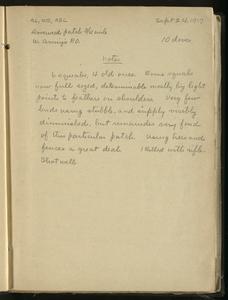 Sept 24, 1917
Browned patch
10 doves
Notes
6 squabs, 4 old ones. Some squabs
now full sized, determinable mostly by light
points to feathers on shoulders. Very few
birds using stubble, and supply visibly
diminished, but remainder very fond
of this particular patch. Using here and
fences a great deal. 1 killed with rifle.
Shot well